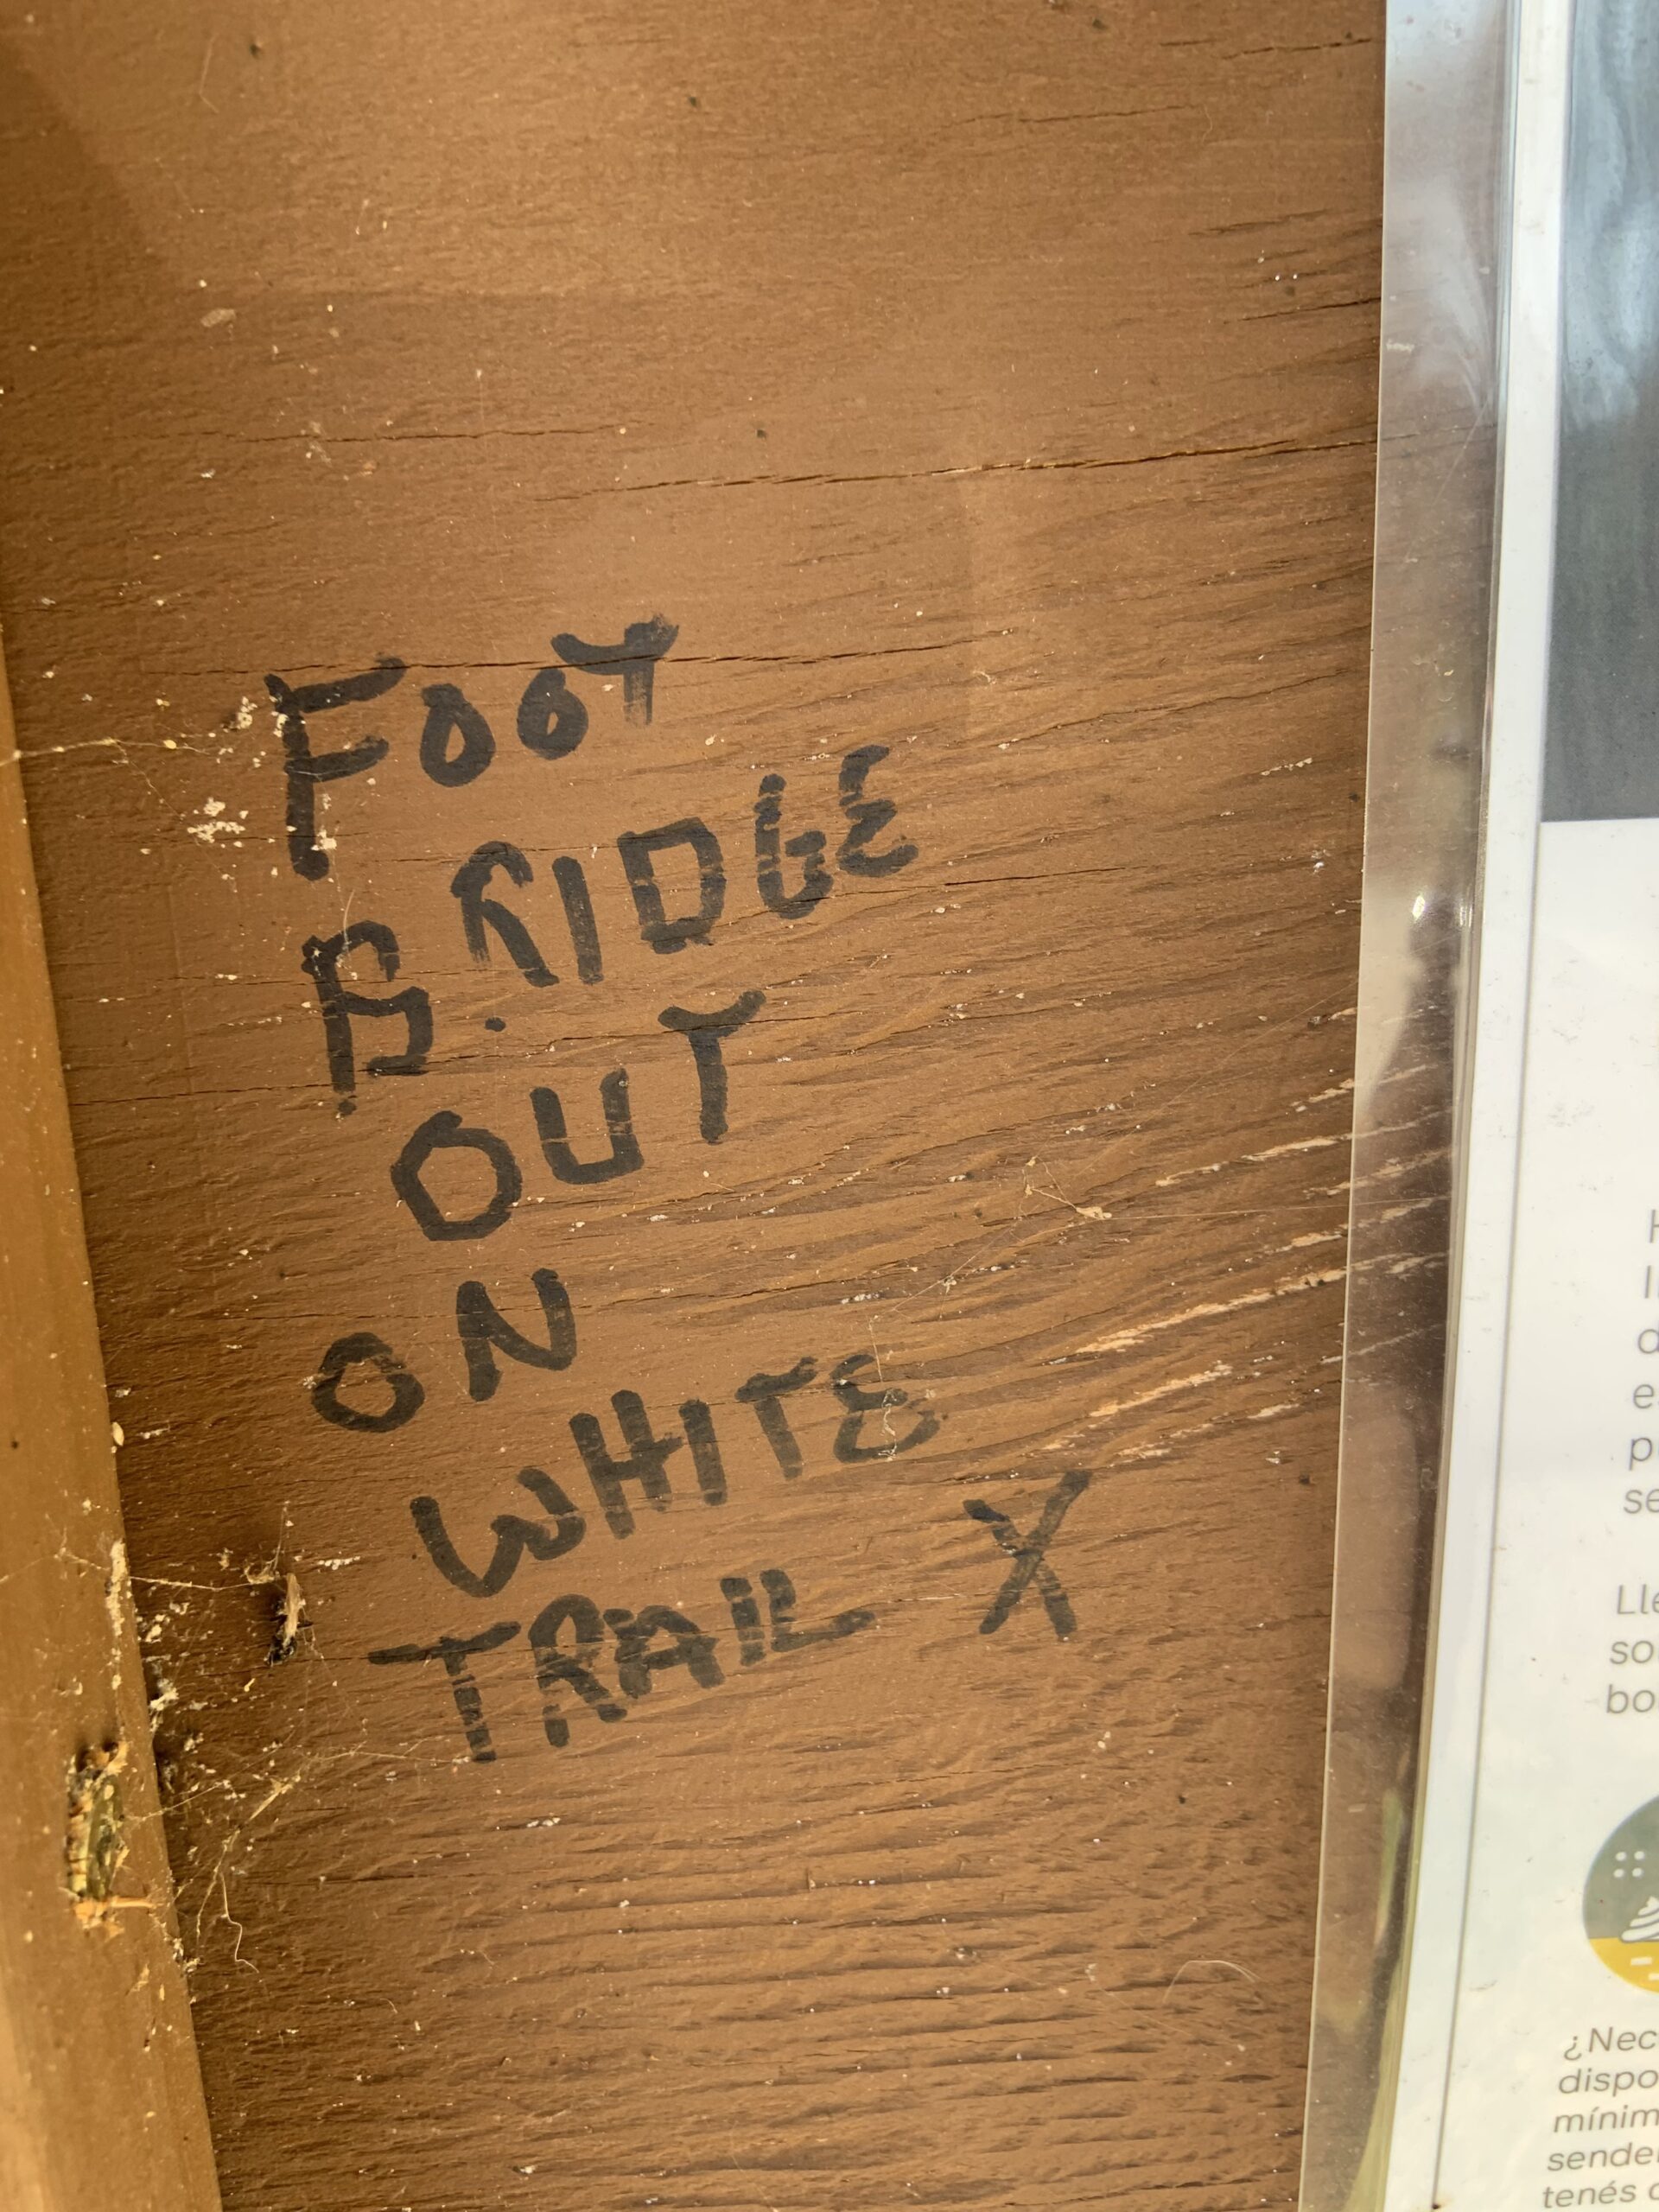 FOOT
BRIDGE
OUT
ON
WHITE
TRAIL X
Lle
¿Nec
dispo
mínim
sender
tenés